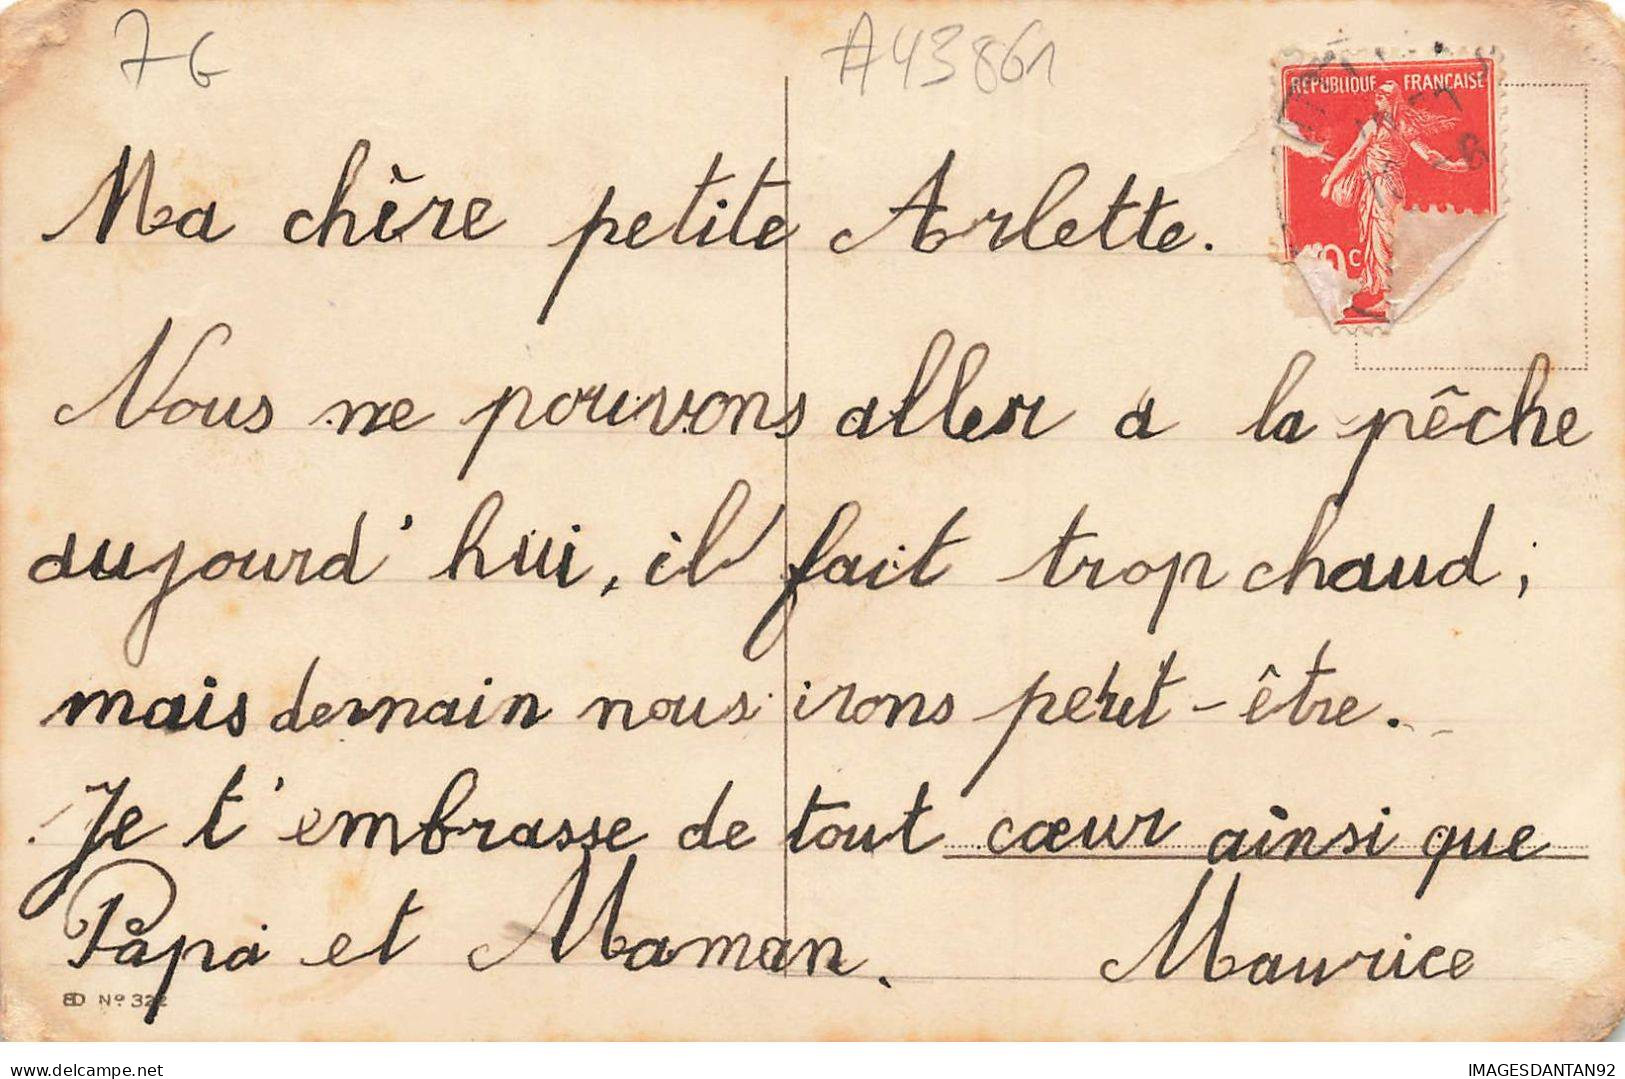 7G
A43861
RÉPUBLIQUE FRANÇAISE
Ma chère petite Arlette.
Nous ne pouvons aller a la pêche
aujourd'hui, il fait trop chaud ;
mais demain nous irons peut-être.
Je t'embrasse de tout cœur ainsi que
Papa et Maman. Maurice
ED Nº 322
IMAGESDANTAN92
delcampe.net